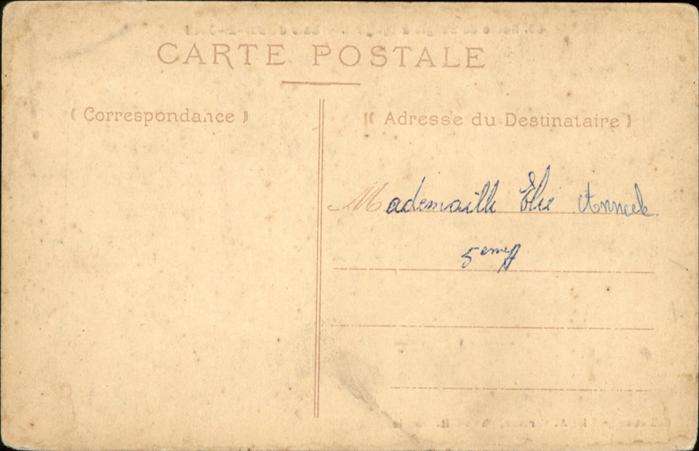 CARTE POSTALE
( Correspondance )
( Adresse du Destinataire )
Mademaille Elie Annick
5eme A